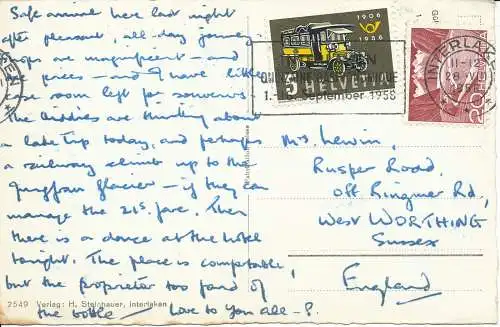 Safe arrival here last night
after pleasant, all-day journey
Shops are magnificent — and
the prices — and I have little
case room left for souvenirs.
The Buddies are thinking about
a lake trip today, and perhaps
a railway climb up to the
Jungfrau Glacier — if they can
manage the 21s. fare. Then
there is a dance at the hotel
tonight. The place is comfortable,
but the proprietor too fond of
the bottle — love to you all — P.
2549 Verlag: H. Steinhauer, Interlaken
1906
1956
5 HELVETIA
1. September 1958
INTERLAKEN
11-12
28 V
1958
20 HELVETIA
Mrs Lewin,
Rusper Road,
Off Ringmer Rd,
West WORTHING
Sussex
England